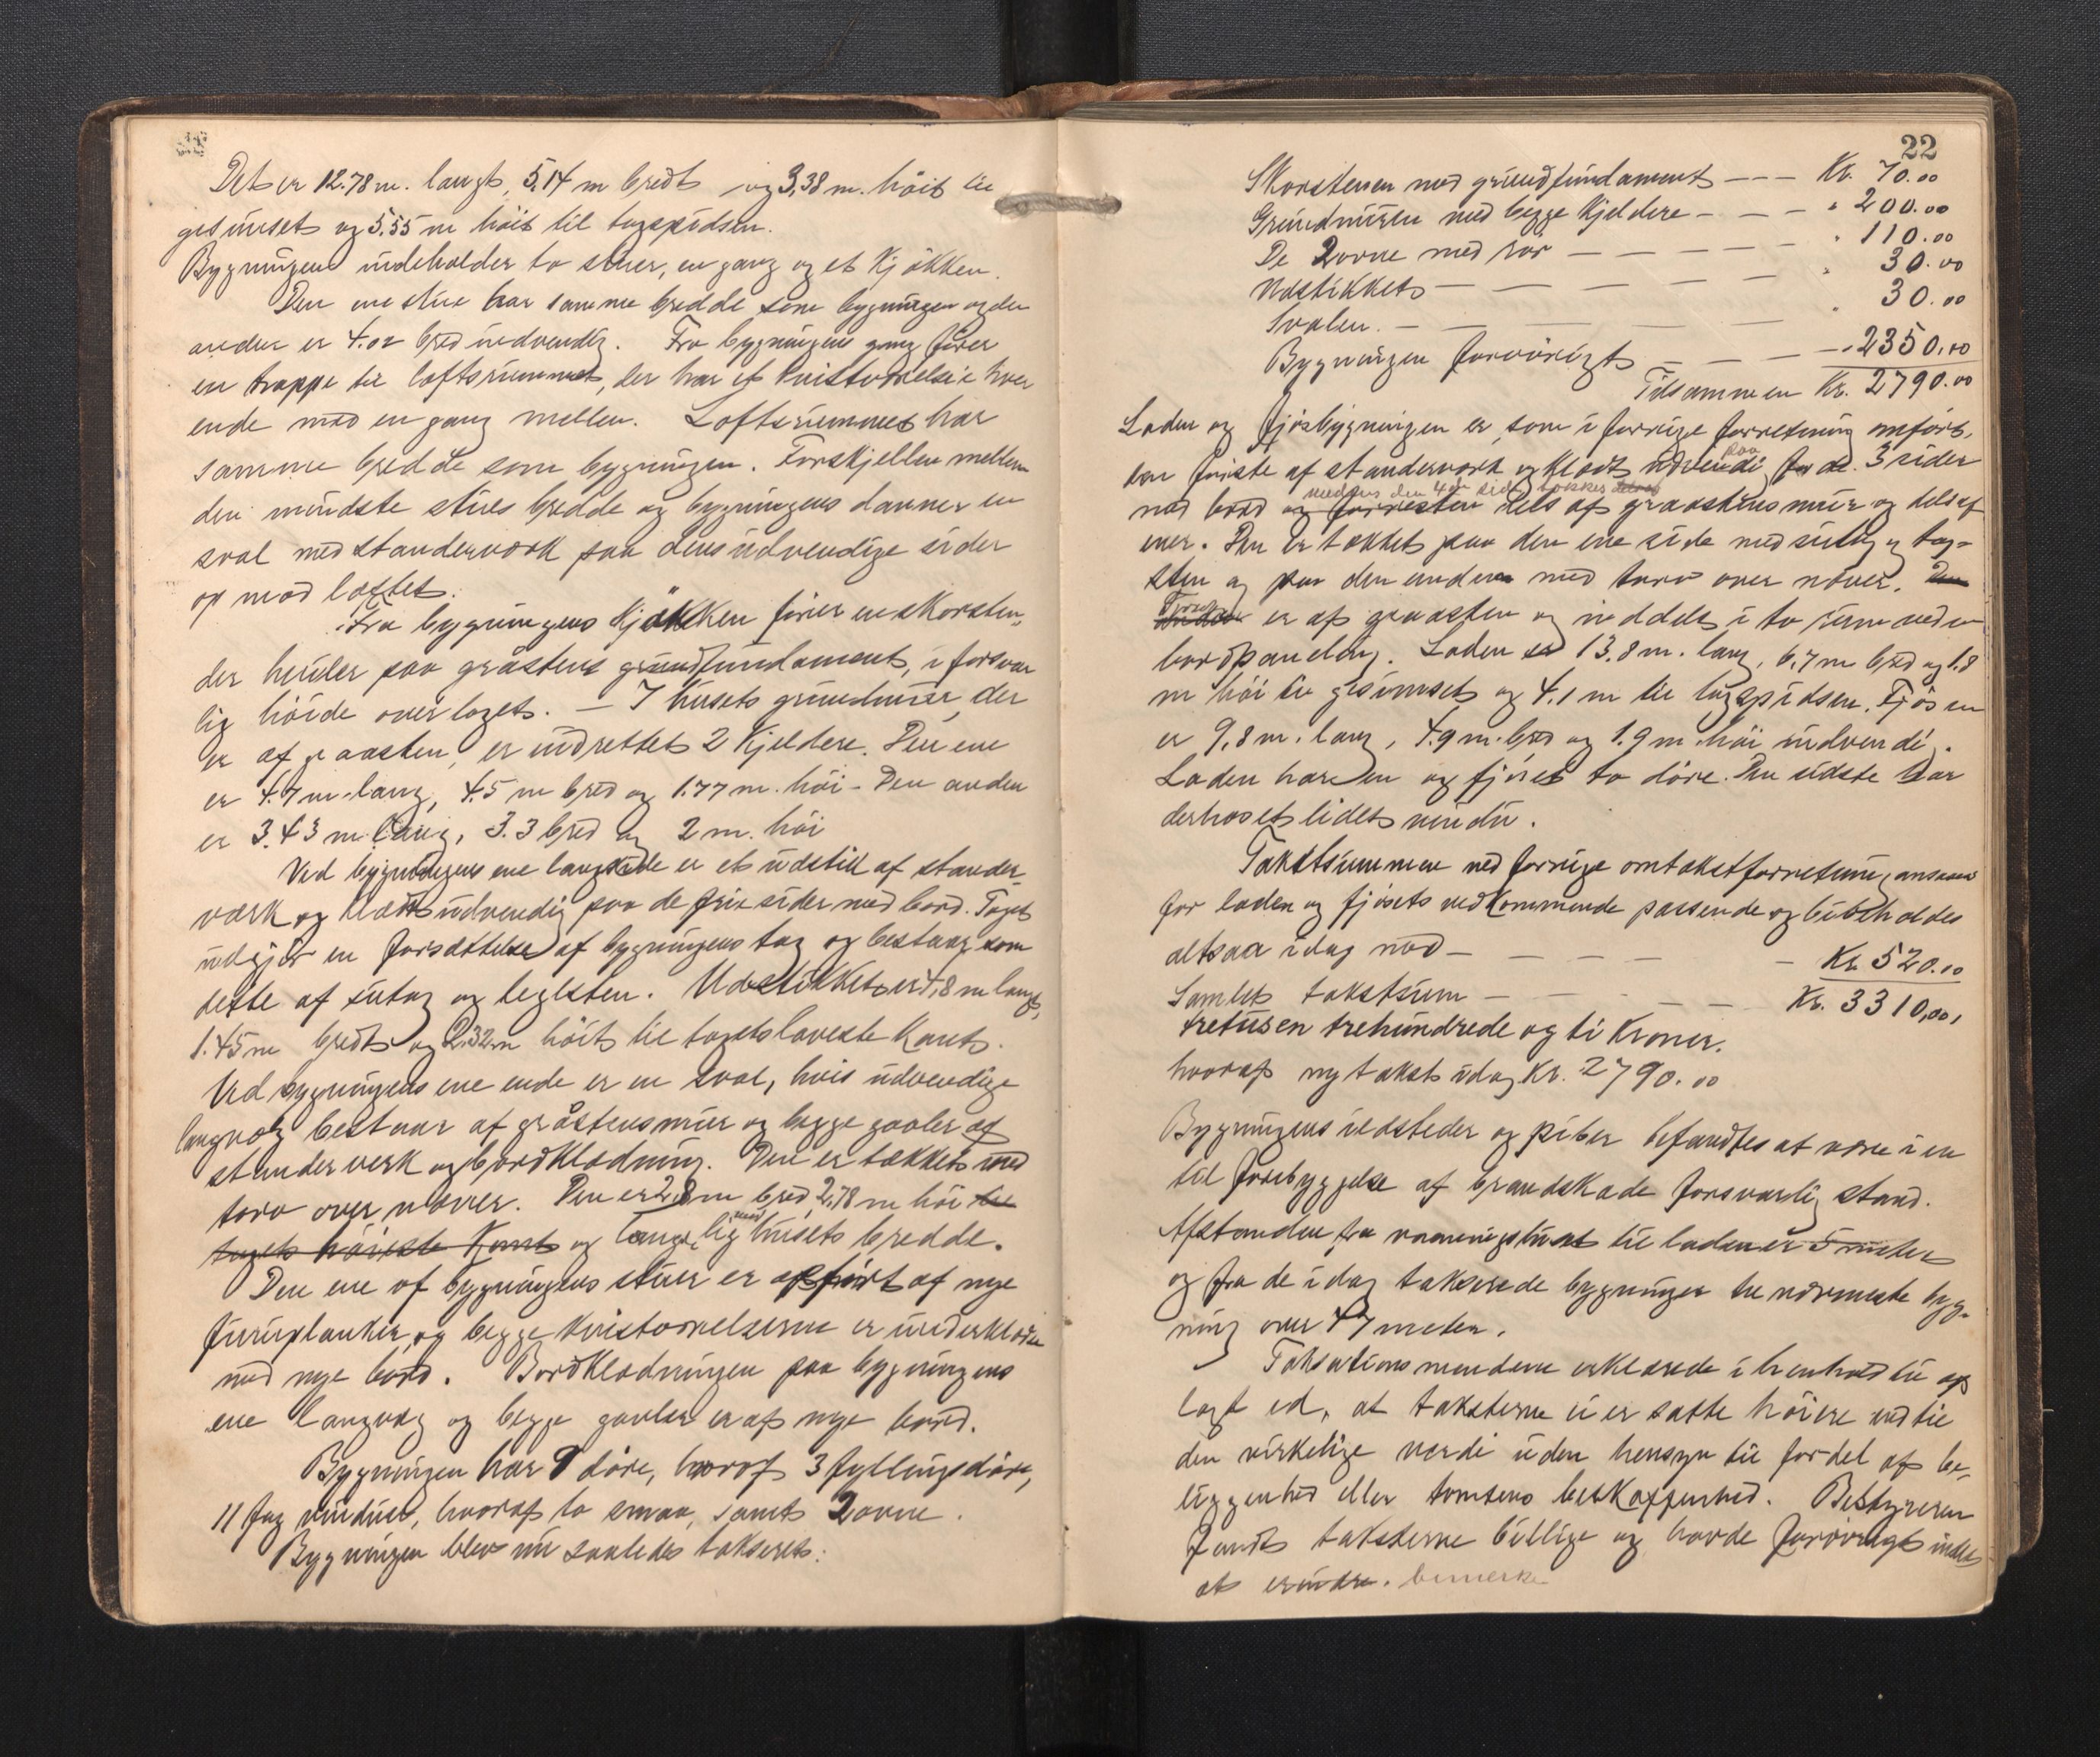 Det er 12.78 m. langt, 5,14 m bredt og 3,38 m. høit til
gesimset og 5.55 m høit til tagspidsen.
Bygningen indeholder to stuer, en gang og et Kjøkken.
Den ene stue har samme bredde som bygningen og den
anden er 4.02 bred indvendig. Fra bygningens gang fører
en trappe til loftsrummet, der har et Kvistværelse i hver
ende med en gang mellem. Loftsrummet har
samme bredde som bygningen. Forskjellen mellem
den mindste stues bredde og bygningens danner en
sval med standerværk paa dens udvendige sider
op mod loftet.
Fra bygningens Kjøkken fører en skorsten,
der hviler paa gråstens grundfundament, i forsvar
lig høide over taget. – I husets grundmur, der
er af graasten, er indrettet 2 Kjeldere. Den ene
er 4.7 m. lang, 4.5 m bred og 1.77 m. høi – Den anden
er 3.43 m. lang, 3.3 bred og 2 m. høi
Ved bygningens ene langside er et udstik af stander
værk og klædt udvendig paa de frie sider med bord. Taget
udgjør en forsættelse af bygningens tag og bestaar som
dette af sutag og teglsten. Udstikket er 4,8 m langt,
1.45 m bredt og 2.32 m høit til tagets laveste Kant.
Ved bygningens ene ende er en sval, hvis udvendige
langvæg bestaar af gråstensmur og begge gavler af
standerverk og bordklædning. Den er tækket med
torv over næver. Den er 2,8 m bred, 2,78 m høi til
tagets høieste Kant og lang lig med husets bredde.
Den ene af bygningens stuer er opført af nye
furuplanker, og begge Kvistværelserne er inderklædte
med nye bord. Bordklædningen paa bygningens
ene langvæg og begge gavler er af nye bord.
Bygningen har 9 døre, hvoraf 3 fyllingsdøre,
11 fag vinduer, hvoraf to smaa, samt 2 ovne.
Bygningen blev nu saaledes takseret:
22
Skorstenen med grundfundament – – – Kr. 70.00
Grundmuren med begge Kjeldere – – – " 200.00
De 2 ovne med rør – – – – " 110.00
Udstikket – – – – – " 30.00
Svalen. – – – – – " 30.00
Bygningen forøvrigt – – – – " 2350,00
Tilsammen Kr. 2790.00
Laden og fjøsbygningen er, som i forrige forretning anført,
den første af standerværk og klædt udvendig paa for de 3 sider
med bord og forresten medens den 4de side dækkes dels af graastensmur og dels af
ener. Den er tækket paa den ene side med sutag og tag-
sten og paa den anden med torv over næver. Den
anden Fjøsen er af graasten og inddelt i to rum ved en
bordpaneling. Laden er 13.8 m. lang, 6,7 m bred og 1.8
m høi til gesimset og 4.1 m til tagspidsen. Fjøsen
er 9,8 m. lang, 4.9 m. bred og 1.9 m. høi indvendig.
Laden har en og fjøset to døre. Den sidste har
derhos et lidet vindu.
Takstsummen ved forrige omtakstforretning ansaaes
for laden og fjøsets vedkommende passende og bibeholdes
altsaa idag med – – – – – Kr. 520.00
Samlet takstsum – – – – – Kr. 3310,00,
tretusen trehundrede og ti Kroner.
hvoraf ny takst idag Kr. 2790.00
Bygningens ildsteder og piber befandtes at være i en
til forebyggelse af brandskade forsvarlig stand.
Afstanden fra vaaningshuset til laden er 5 meter
og fra de idag takserede bygninger til nærmeste byg-
ning over 47 meter.
Taksationsmændene erklærede i henhold til op
lagt ed, at taksterne ei er satte høiere end til
den virkelige værdi uden hensyn til fordel af be-
liggenhed eller tomtens beskaffenhed. Bestyreren
fandt taksterne billige og havde forøvrigt intet
at erindre. bemerke